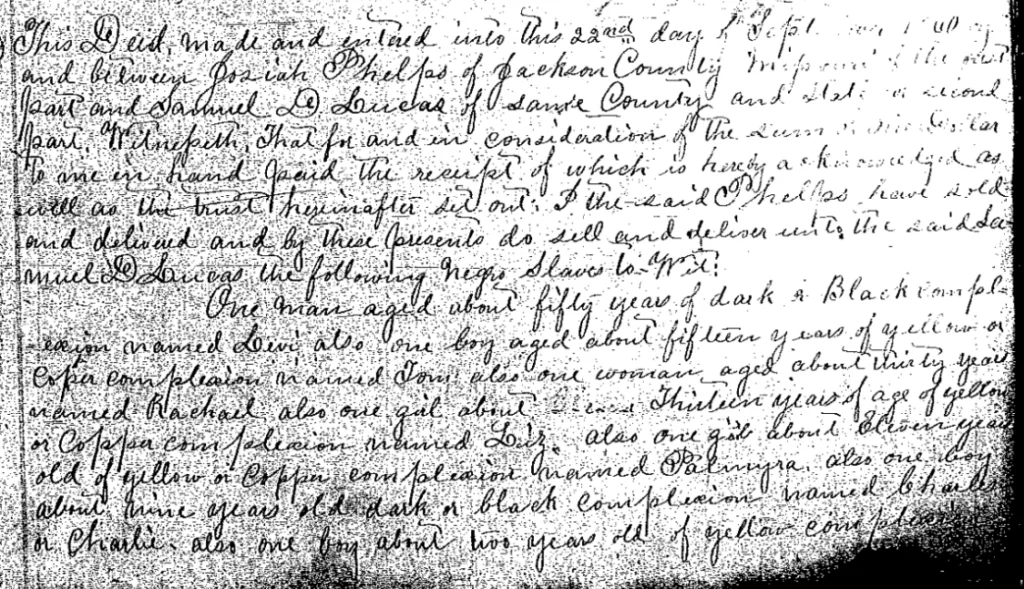 This Deed, made and entered into this 22nd day of Sept
and between Josiah Phelps of Jackson County Missouri of the first
part and Samuel D Lucas of same County and state of second
part. Witnesseth, That for and in consideration of the sum of dollar
to me in hand paid the receipt of which is hereby acknowledged as
well as the trust hereinafter set out. I the said Phelps have sold
and delivered and by these presents do sell and deliver unto the said Sa
muel D Lucas the following Negro Slaves to-Wit:
One man aged about fifty years of dark or Black compl-
-exion named Levi also one boy aged about fifteen years of yellow or
Coper complexion named Tom also one woman aged about thirty years
named Rachael also one girl about Thirteen years of age of yellow
or Copper complexion named Liz. also one girl about Eleven years
old of yellow or Copper complexion named Palmyra. also one boy
about nine years old dark or black complexion named Charles
or Charlie. also one boy about two years old of yellow complexion